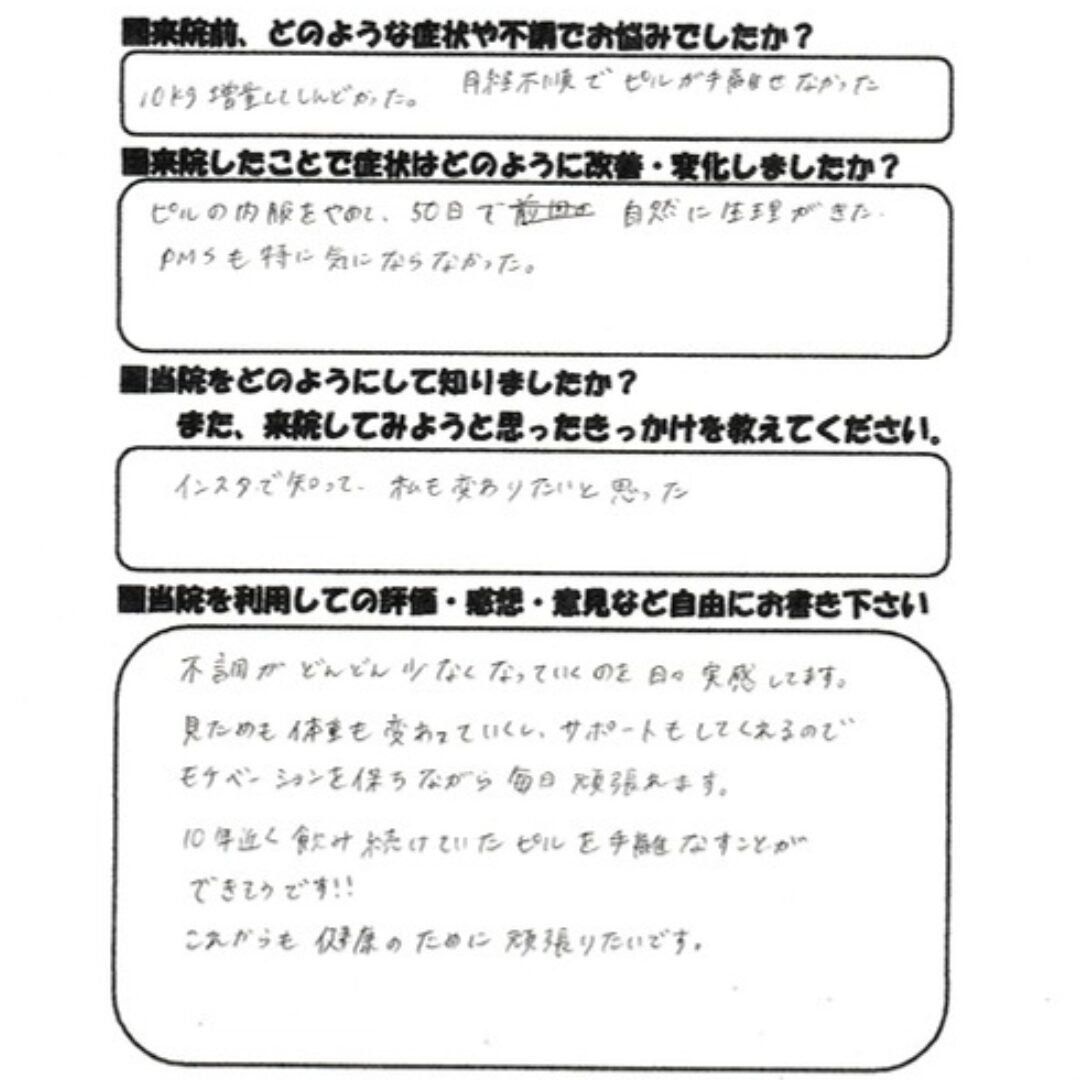 ■来院前、どのような症状や不調でお悩みでしたか？
10kg増量してしんどかった。 月経不順でピルが手離せなかった
■来院したことで症状はどのように改善・変化しましたか？
ピルの内服をやめて、50日で 自然に生理がきた。
PMSも特に気にならなかった。
■当院をどのようにして知りましたか？
また、来院してみようと思ったきっかけを教えてください。
インスタで知って、私も変わりたいと思った
■当院を利用しての評価・感想・意見など自由にお書き下さい
不調がどんどん少なくなっていくのを日々実感してます。
見ためも体重も変わっていくし、サポートもしてくれるので
モチベーションを保ちながら毎日頑張れます。
10年近く飲み続けていたピルを手離なすことが
できそうです!!
これからも健康のために頑張りたいです。